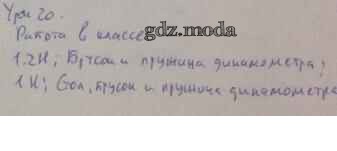 Урок 20.
Работа в классе
gdz.moda
1. 2Н; Брусок и пружина динамометра;
1Н; Стол, брусок и пружина динамометра